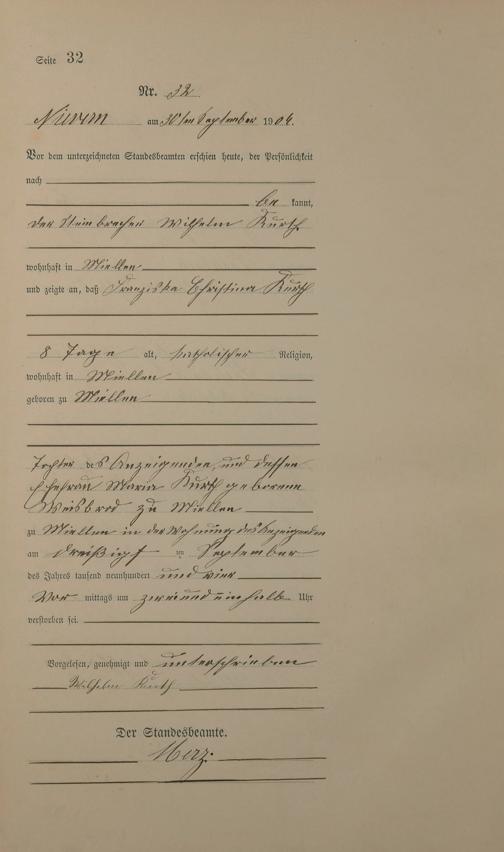 Seite 32
Nr. 32
Nievern am 30ten September 1904.
Vor dem unterzeichneten Standesbeamten erschien heute, der Persönlichkeit
nach
be kannt,
der Steinbrecher Wilhelm Kurth
wohnhaft in Miellen
und zeigte an, daß Franziska Christina Kurth
8 Tage alt, katholischer Religion,
wohnhaft in Miellen
geboren zu Miellen
Tochter des Anzeigenden, und dessen
Ehefrau Maria Kurth geborene
Weisbrod zu Miellen
zu Miellen in der Wohnung des Anzeigenden
am dreißigst en September
des Jahres tausend neunhundert und vier
Vor mittags um zwei und ein halb Uhr
verstorben sei.
Vorgelesen, genehmigt und unterschrieben
Wilhelm Kurth
Der Standesbeamte.
Merz.